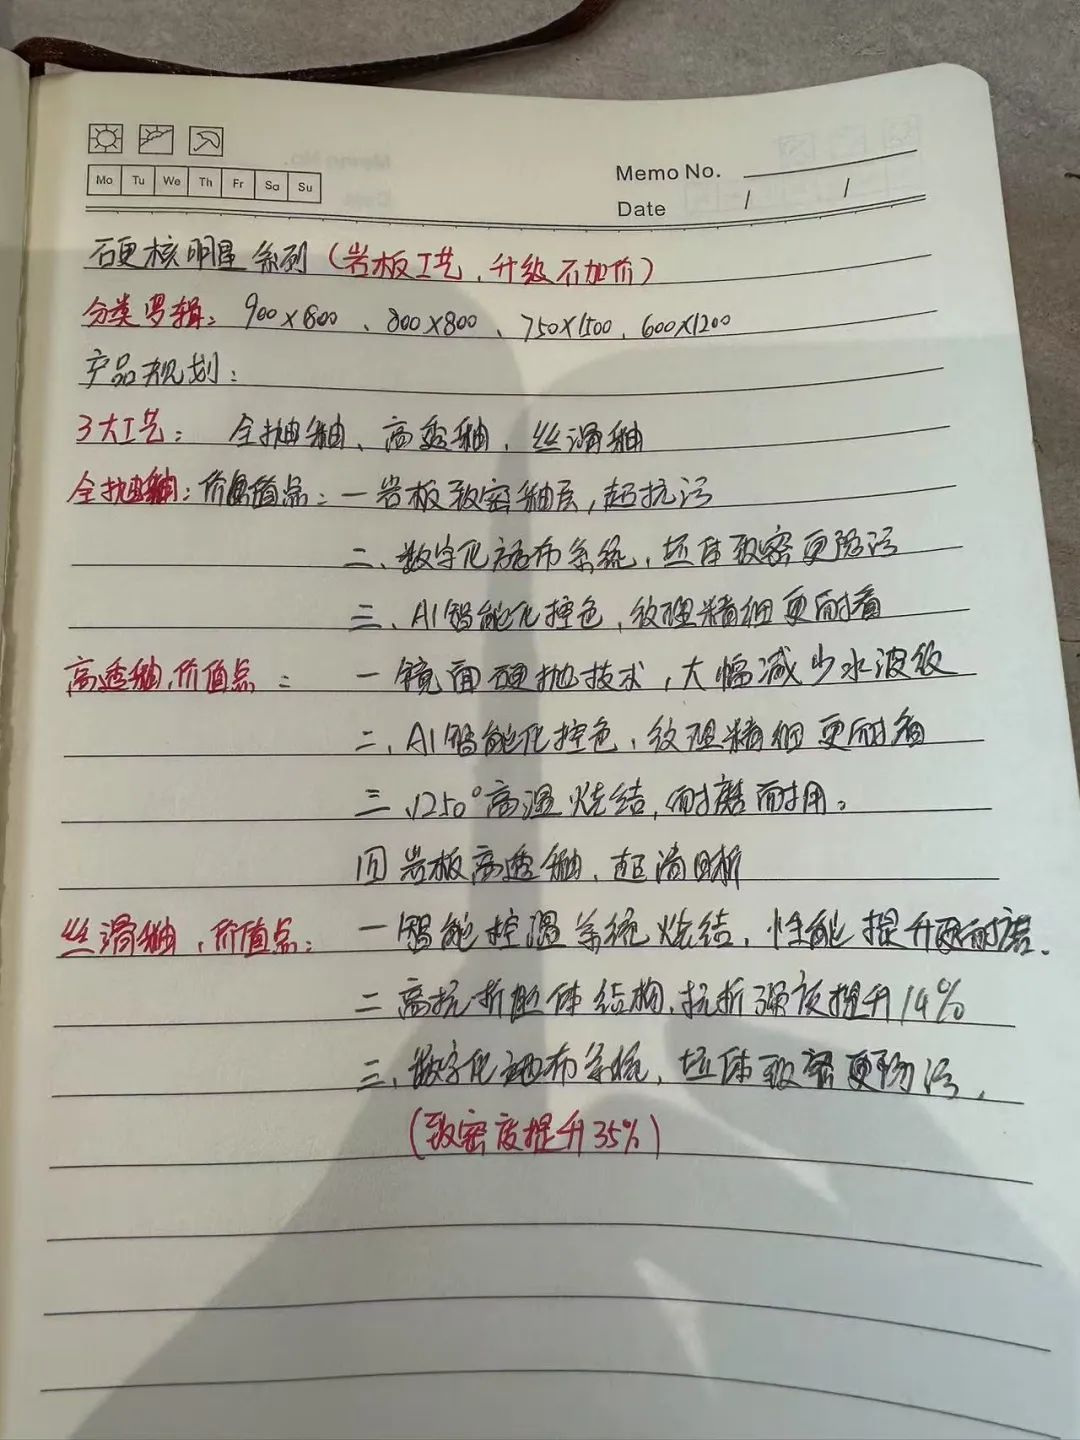 Mo Tu We Th Fr Sa Su
Memo No.
Date / /
硬核明星系列（岩板工艺，升级不加价）
分类罗辑：900×1800、800×800、750×1500、600×1200
产品规划：
3大工艺：全抛釉、高透釉、丝滑釉
全抛釉：价值点：一岩板致密釉层，超抗污
二、数字化布系统，坯体致密更防污
三、AI智能化控色，纹理精细更耐看
高透釉，价值点：一镜面硬抛技术，大幅减少水波纹
二、AI智能化控色，纹理精细更耐看
三、1250°高温烧结，耐磨耐用。
四岩板高透釉，超清晰
丝滑釉，价值点：一智能控温系统烧结，性能提升更耐磨．
二高抗折胚体结构，抗折强度提升14%
三、数字化布系统，坯体致密更防污，
（致密度提升35%）